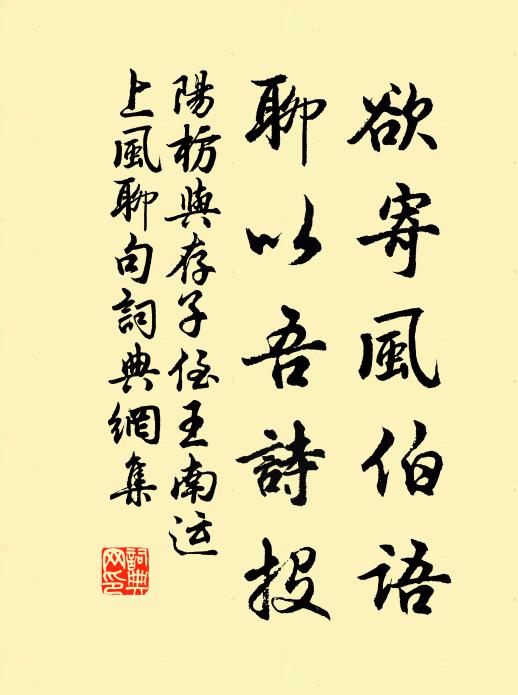 欲寄風伯語
聊以吾詩投
陽枋與存子侄王南运
上風聊句詞典網集
詞典
网印